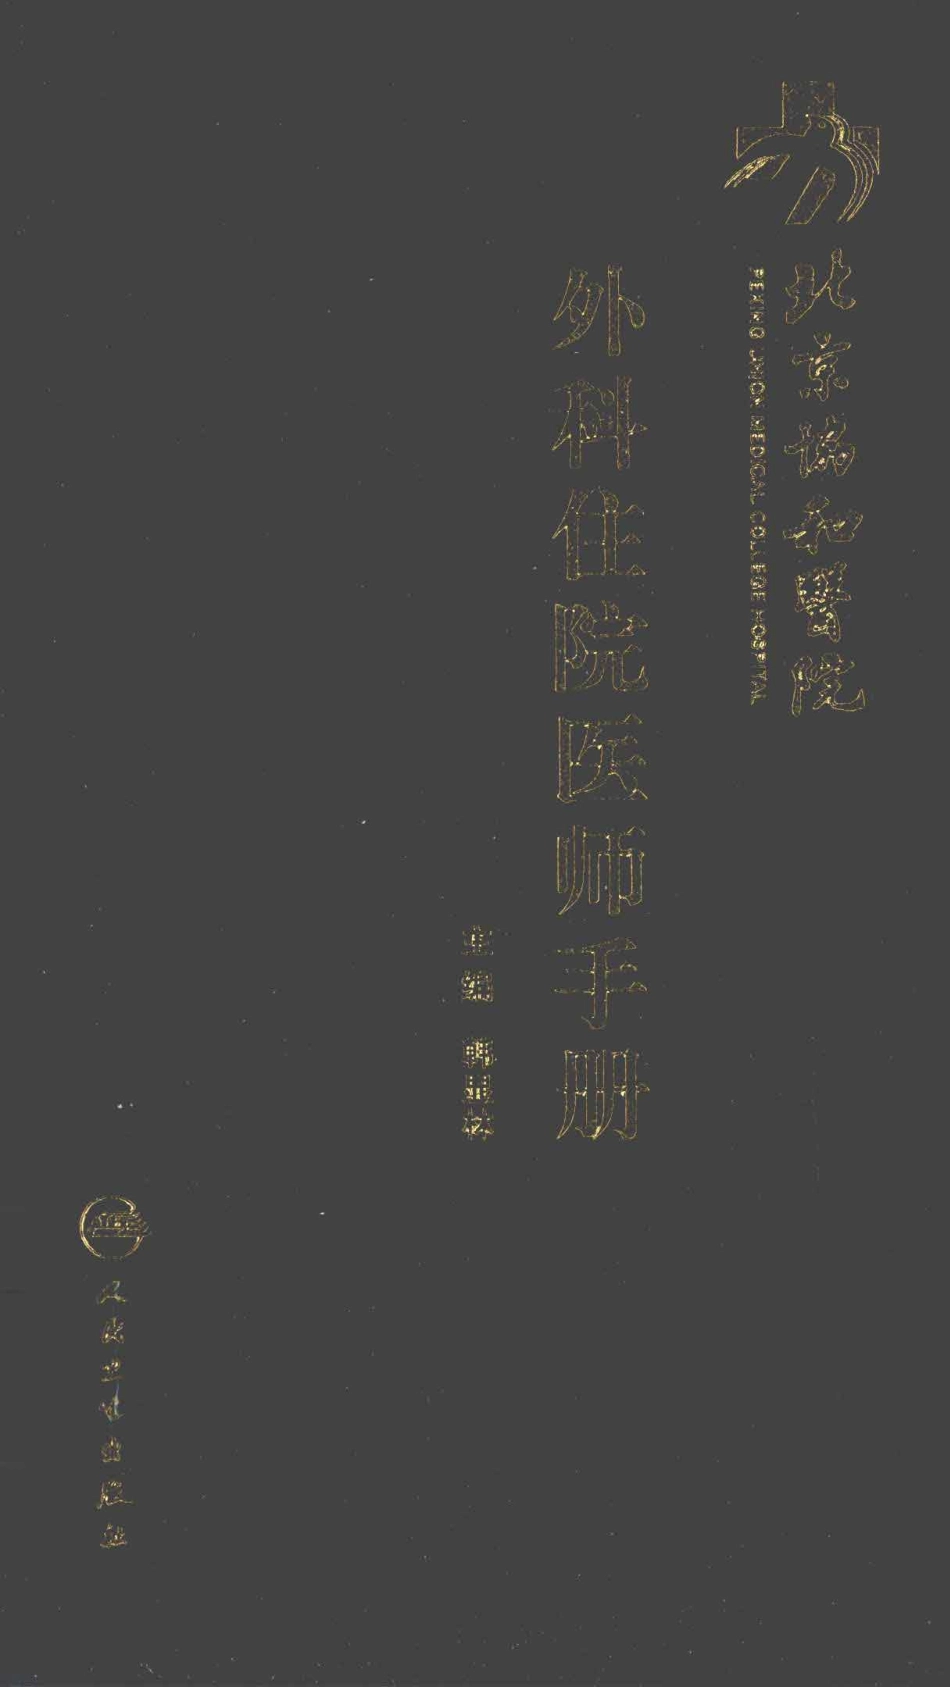 北京协和醫院
PEKING UNION MEDICAL COLLEGE HOSPITAL
外科住院医师手册
主编 韩显林
人民卫生出版社